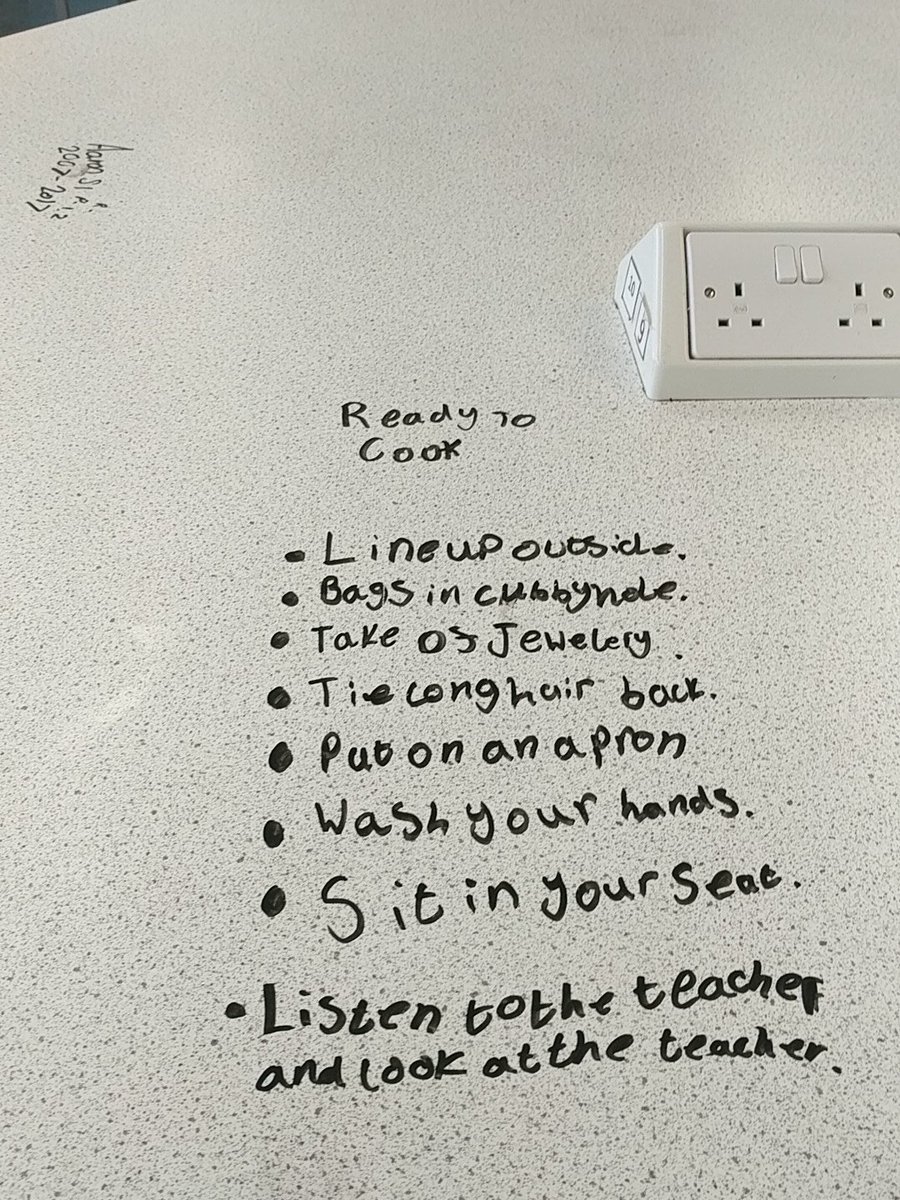 2007-2017
10
9
Ready To
Cook
• Line up outside.
• Bags in cubbyhole.
• Take of Jewelery.
• Tie long hair back.
• Put on an apron
• Wash your hands.
• Sit in your seat.
• Listen to the teacher
and look at the teacher.